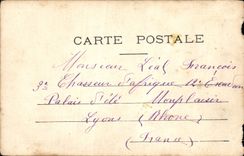 CARTE POSTALE
Monsieur Liét François
3e Chasseur d'afrique 12e Escadron
Palais d'été Monplaisir
Lyons (Rhone)
(France)